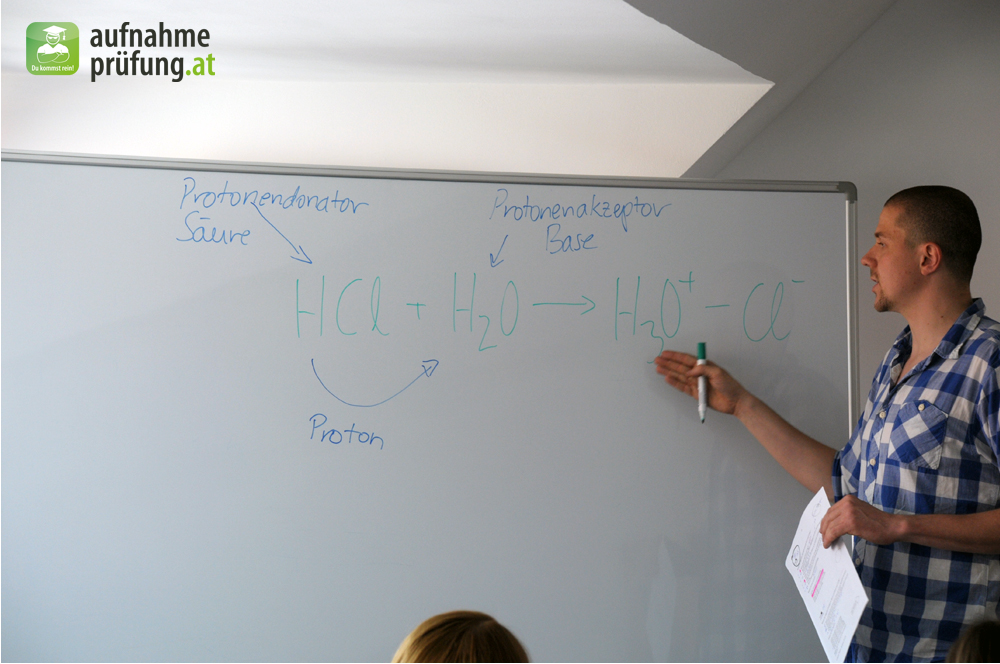 Du kommst rein!
aufnahme
prüfung.at
Protonendonator
Säure
Protonenakzeptor
Base
HCl + H2O → H3O+ – Cl-
Proton